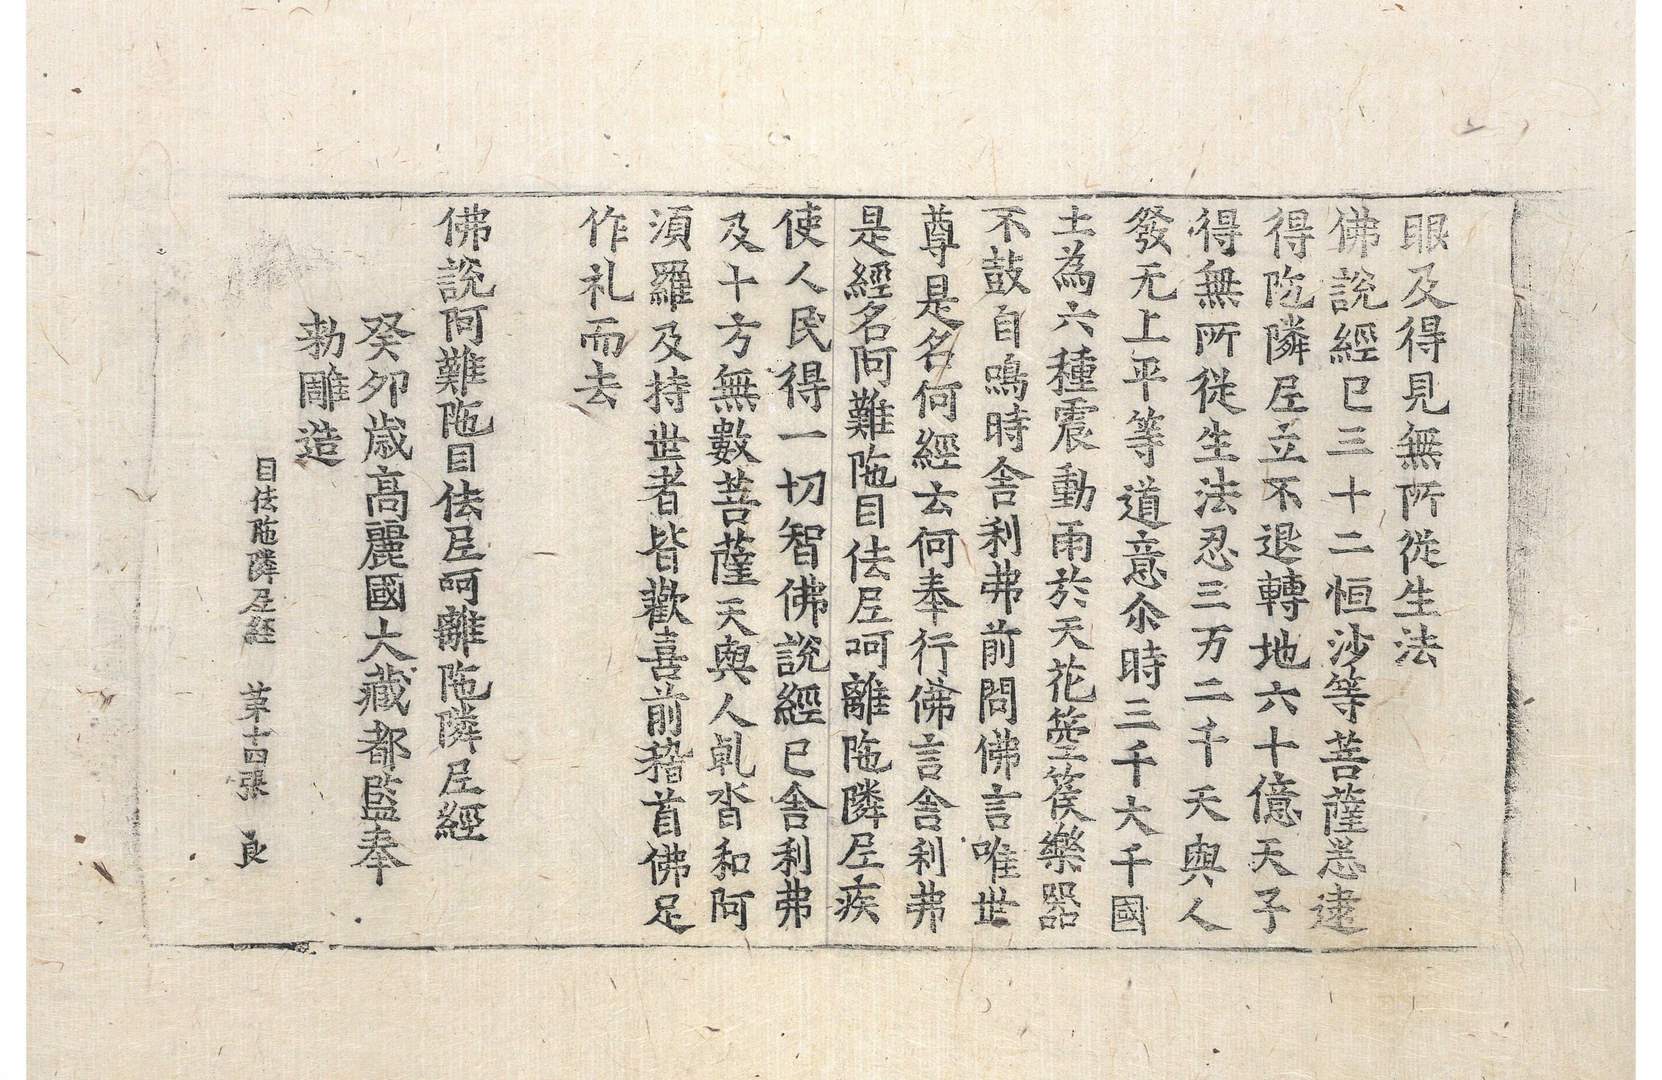 眼及得見無所從生法
佛說經已三十二恒沙等菩薩悉逮
得陁隣尼立不退轉地六十億天子
得無所從生法忍三万二千天與人
發无上平等道意尒時三千大千國
土為六種震動雨於天花箜篌樂器
不鼓自鳴時舍利弗前問佛言唯世
尊是名何經云何奉行佛言舍利弗
是經名阿難陁目佉尼呵離陁隣尼疾
使人民得一切智佛說經已舍利弗
及十方無數菩薩天與人乹沓和阿
湏羅及持世者皆歡喜前稽首佛足
作礼而去
佛說阿難陁目佉尼呵離陁隣尼經
癸夘歲高麗國大藏都監奉
勑雕造
目佉陁隣尼経 苐十四張 良